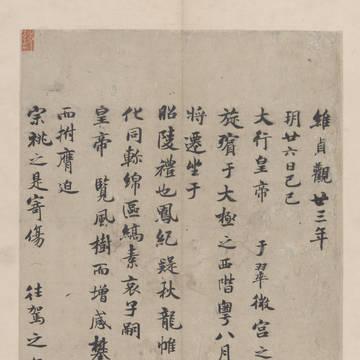 維貞觀廿三年
玥廿六日己巳
大行皇帝 于翠微宮之
旋殯于大極之西階粵八月
將遷坐于
昭陵禮也鳳紀疑秋龍帷
化同軫綿區縞素哀子嗣
皇帝 覽風樹而增感攀
而拊膺迫
宗祧之是寄傷 往駕之